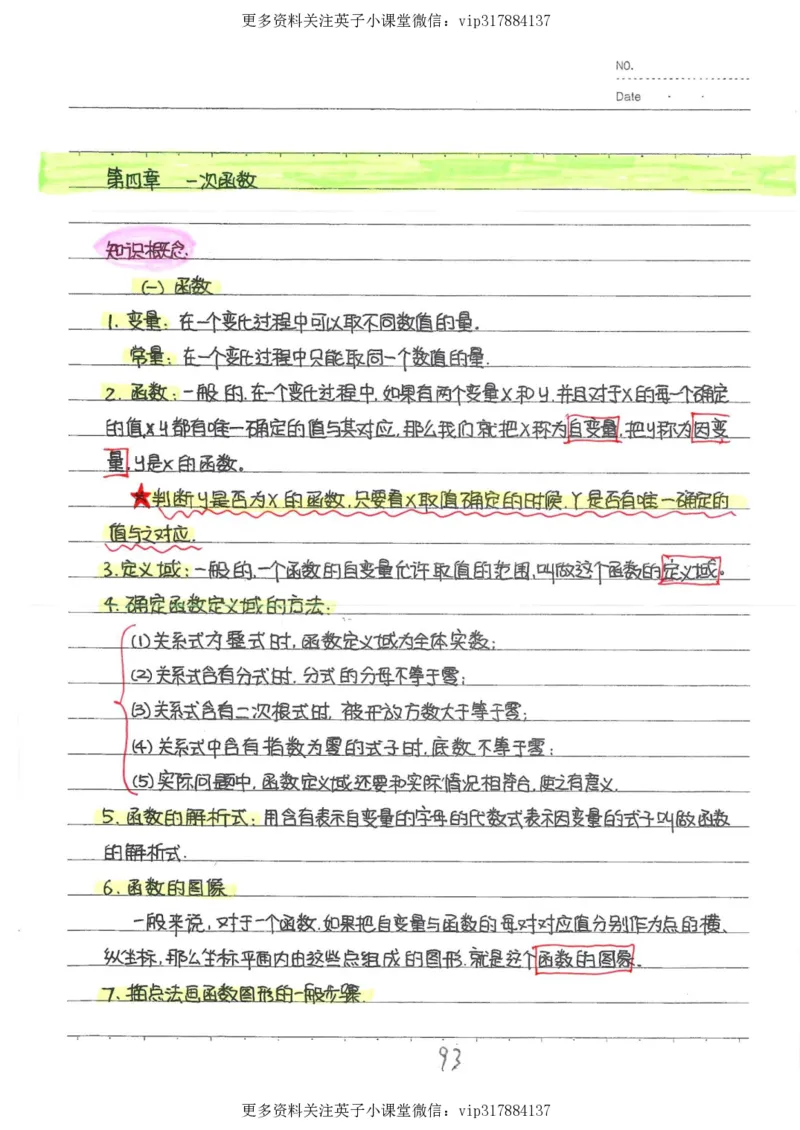 更多资料关注英子小课堂微信：vip317884137
NO.
Date · ·
第四章 一次函数
知识概念.
(一) 函数
1. 变量：在一个变化过程中可以取不同数值的量。
常量：在一个变化过程中只能取同一个数值的量.
2. 函数：一般的.在一个变化过程中,如果有两个变量X和y,并且对于X的每一个确定
的值,x y都有唯一确定的值与其对应,那么我们就把X称为自变量,把y称为因变
量,y是x的函数。
★判断y是否为X的函数,只要看X取值确定的时候,Y是否有唯一确定的
值与之对应.
3.定义域：一般的,一个函数的自变量允许取值的范围,叫做这个函数的定义域。
4. 确定函数定义域的方法：
(1)关系式为整式时,函数定义域为全体实数；
(2)关系式含有分式时,分式的分母不等于零；
(3)关系式含有二次根式时,被开放方数大于等于零；
(4)关系式中含有指数为零的式子时,底数不等于零；
(5)实际问题中,函数定义域还要和实际情况相符合,使之有意义.
5. 函数的解析式：用含有表示自变量的字母的代数式表示因变量的式子叫做函数
的解析式.
6. 函数的图像
一般来说,对于一个函数,如果把自变量与函数的每对对应值分别作为点的横、
纵坐标,那么坐标平面内由这些点组成的图形.就是这个函数的图象。
7. 描点法画函数图形的一般步骤.
93
更多资料关注英子小课堂微信：vip317884137